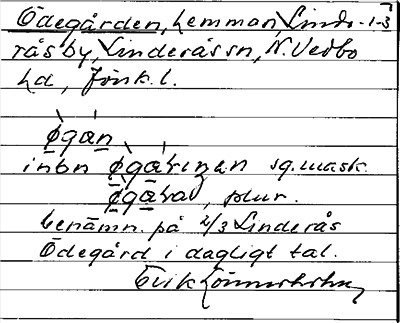 Ödegården, hemman, Linde- 1-3
rås by, Linderås sn, N. Vedbo
hd, Jönk. l.
ø̀gạ́n
inbn ø̀gạ́rinan sg. mask.
ø̀gạra, plur.
benämn. på 2/3 Linderås
Ödegård i dagligt tal.
Erik